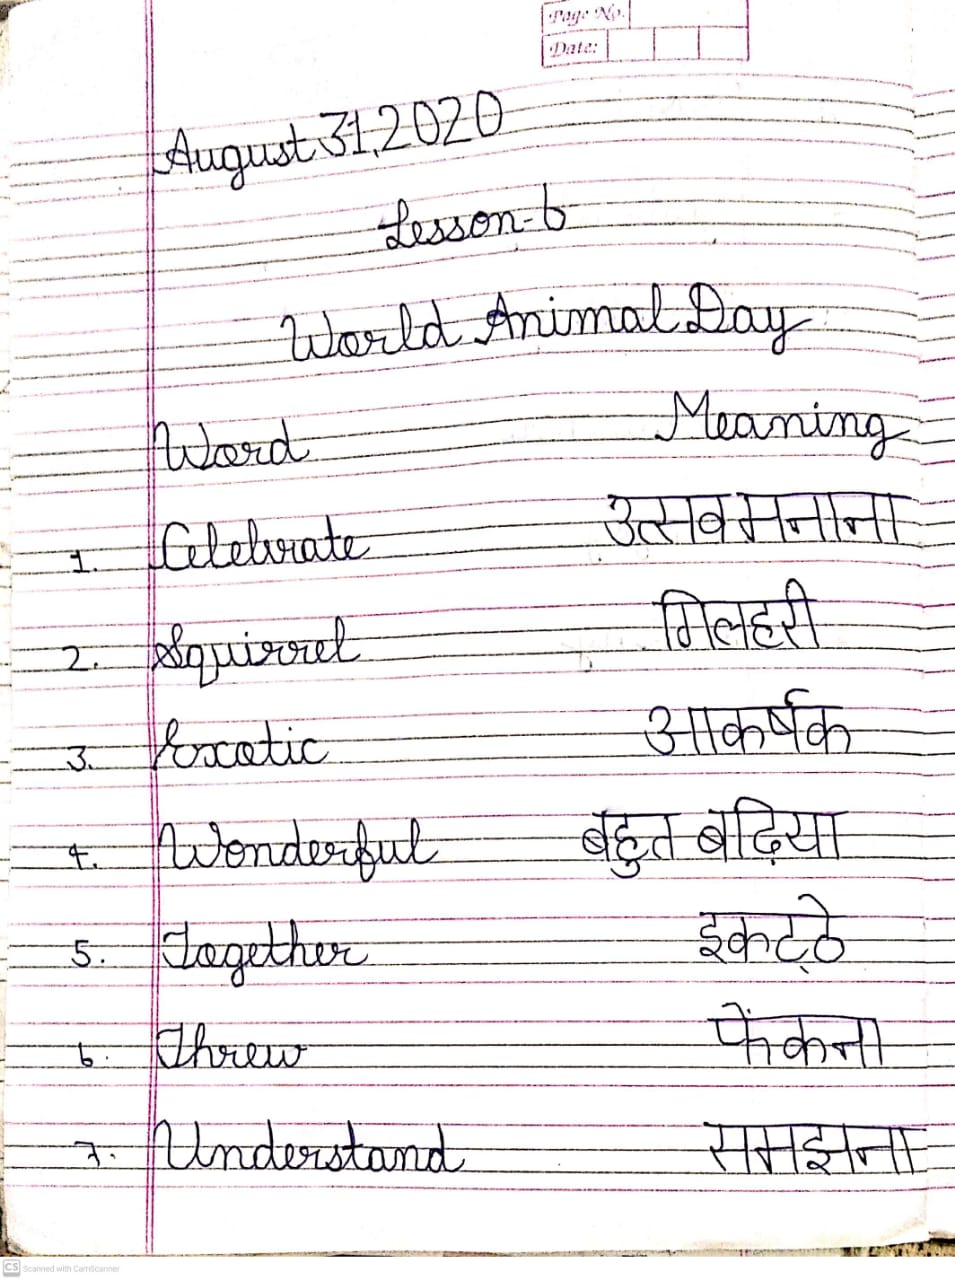 Page No.
Date:
August 31, 2020
Lesson-6
World Animal Day
Word Meaning
1. Celebrate उत्सव मनाना
2. Squirrel गिलहरी
3. Excotic आकर्षक
4. Wonderful बहुत बढ़िया
5. Together इकट्ठे
6. Threw फेंकना
7. Understand समझना
CS Scanned with CamScanner